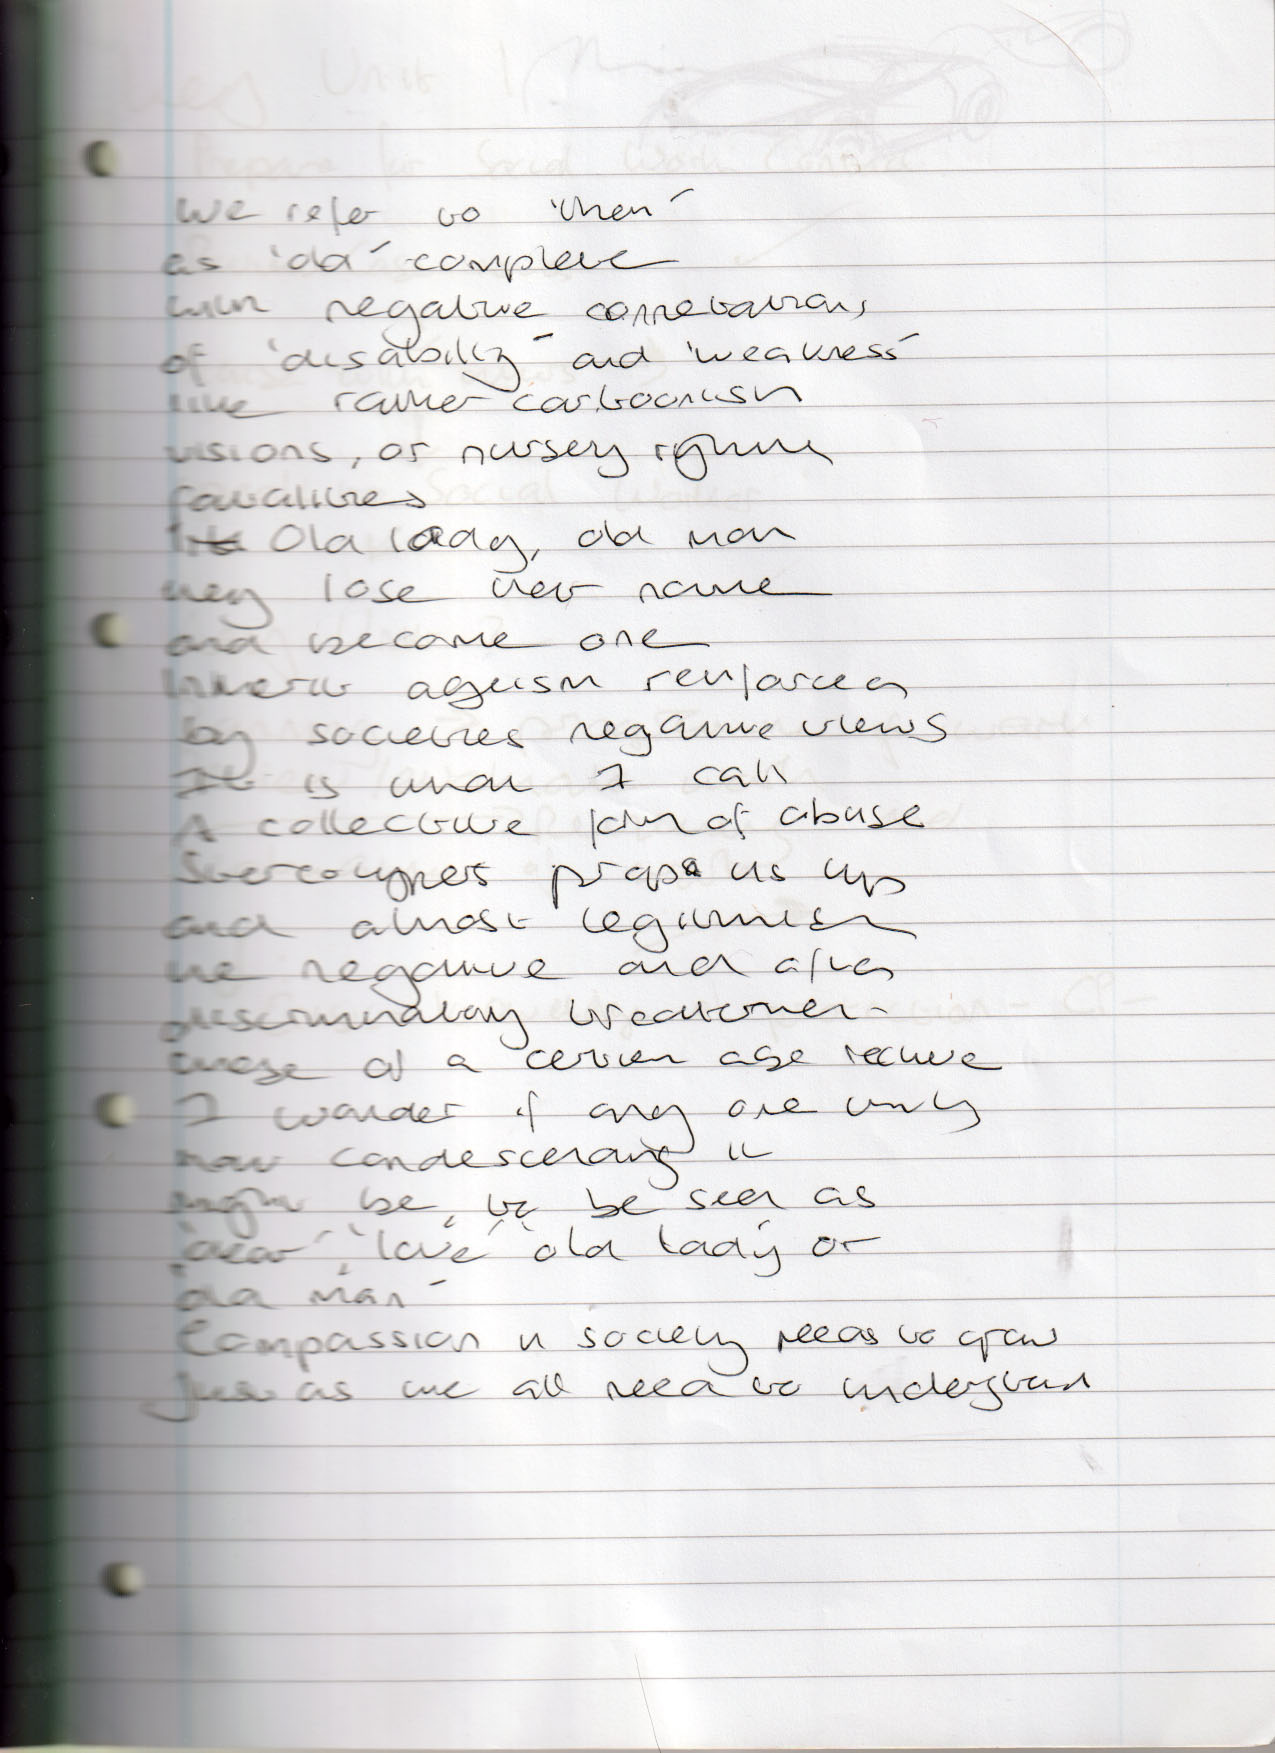 We refer to 'them'
as 'old' complete
with negative connotations
of 'disability' and 'weakness'
like rather cartoonish
visions, or nursery rhyme
favourites
Old lady, old man
they lose their name
and become one
Inherit ageism reinforced
by societies negative views
It is what I call
A collective form of abuse
Stereotypes props us up
and almost legitimise
the negative and often
discriminatory treatment
those of a certain age receive
I wonder if any one truly
how condescending it
might be, to be seen as
'dear', 'love' 'old lady' or
'old man'
Compassion in society needs to grow
Just as we all need to understand